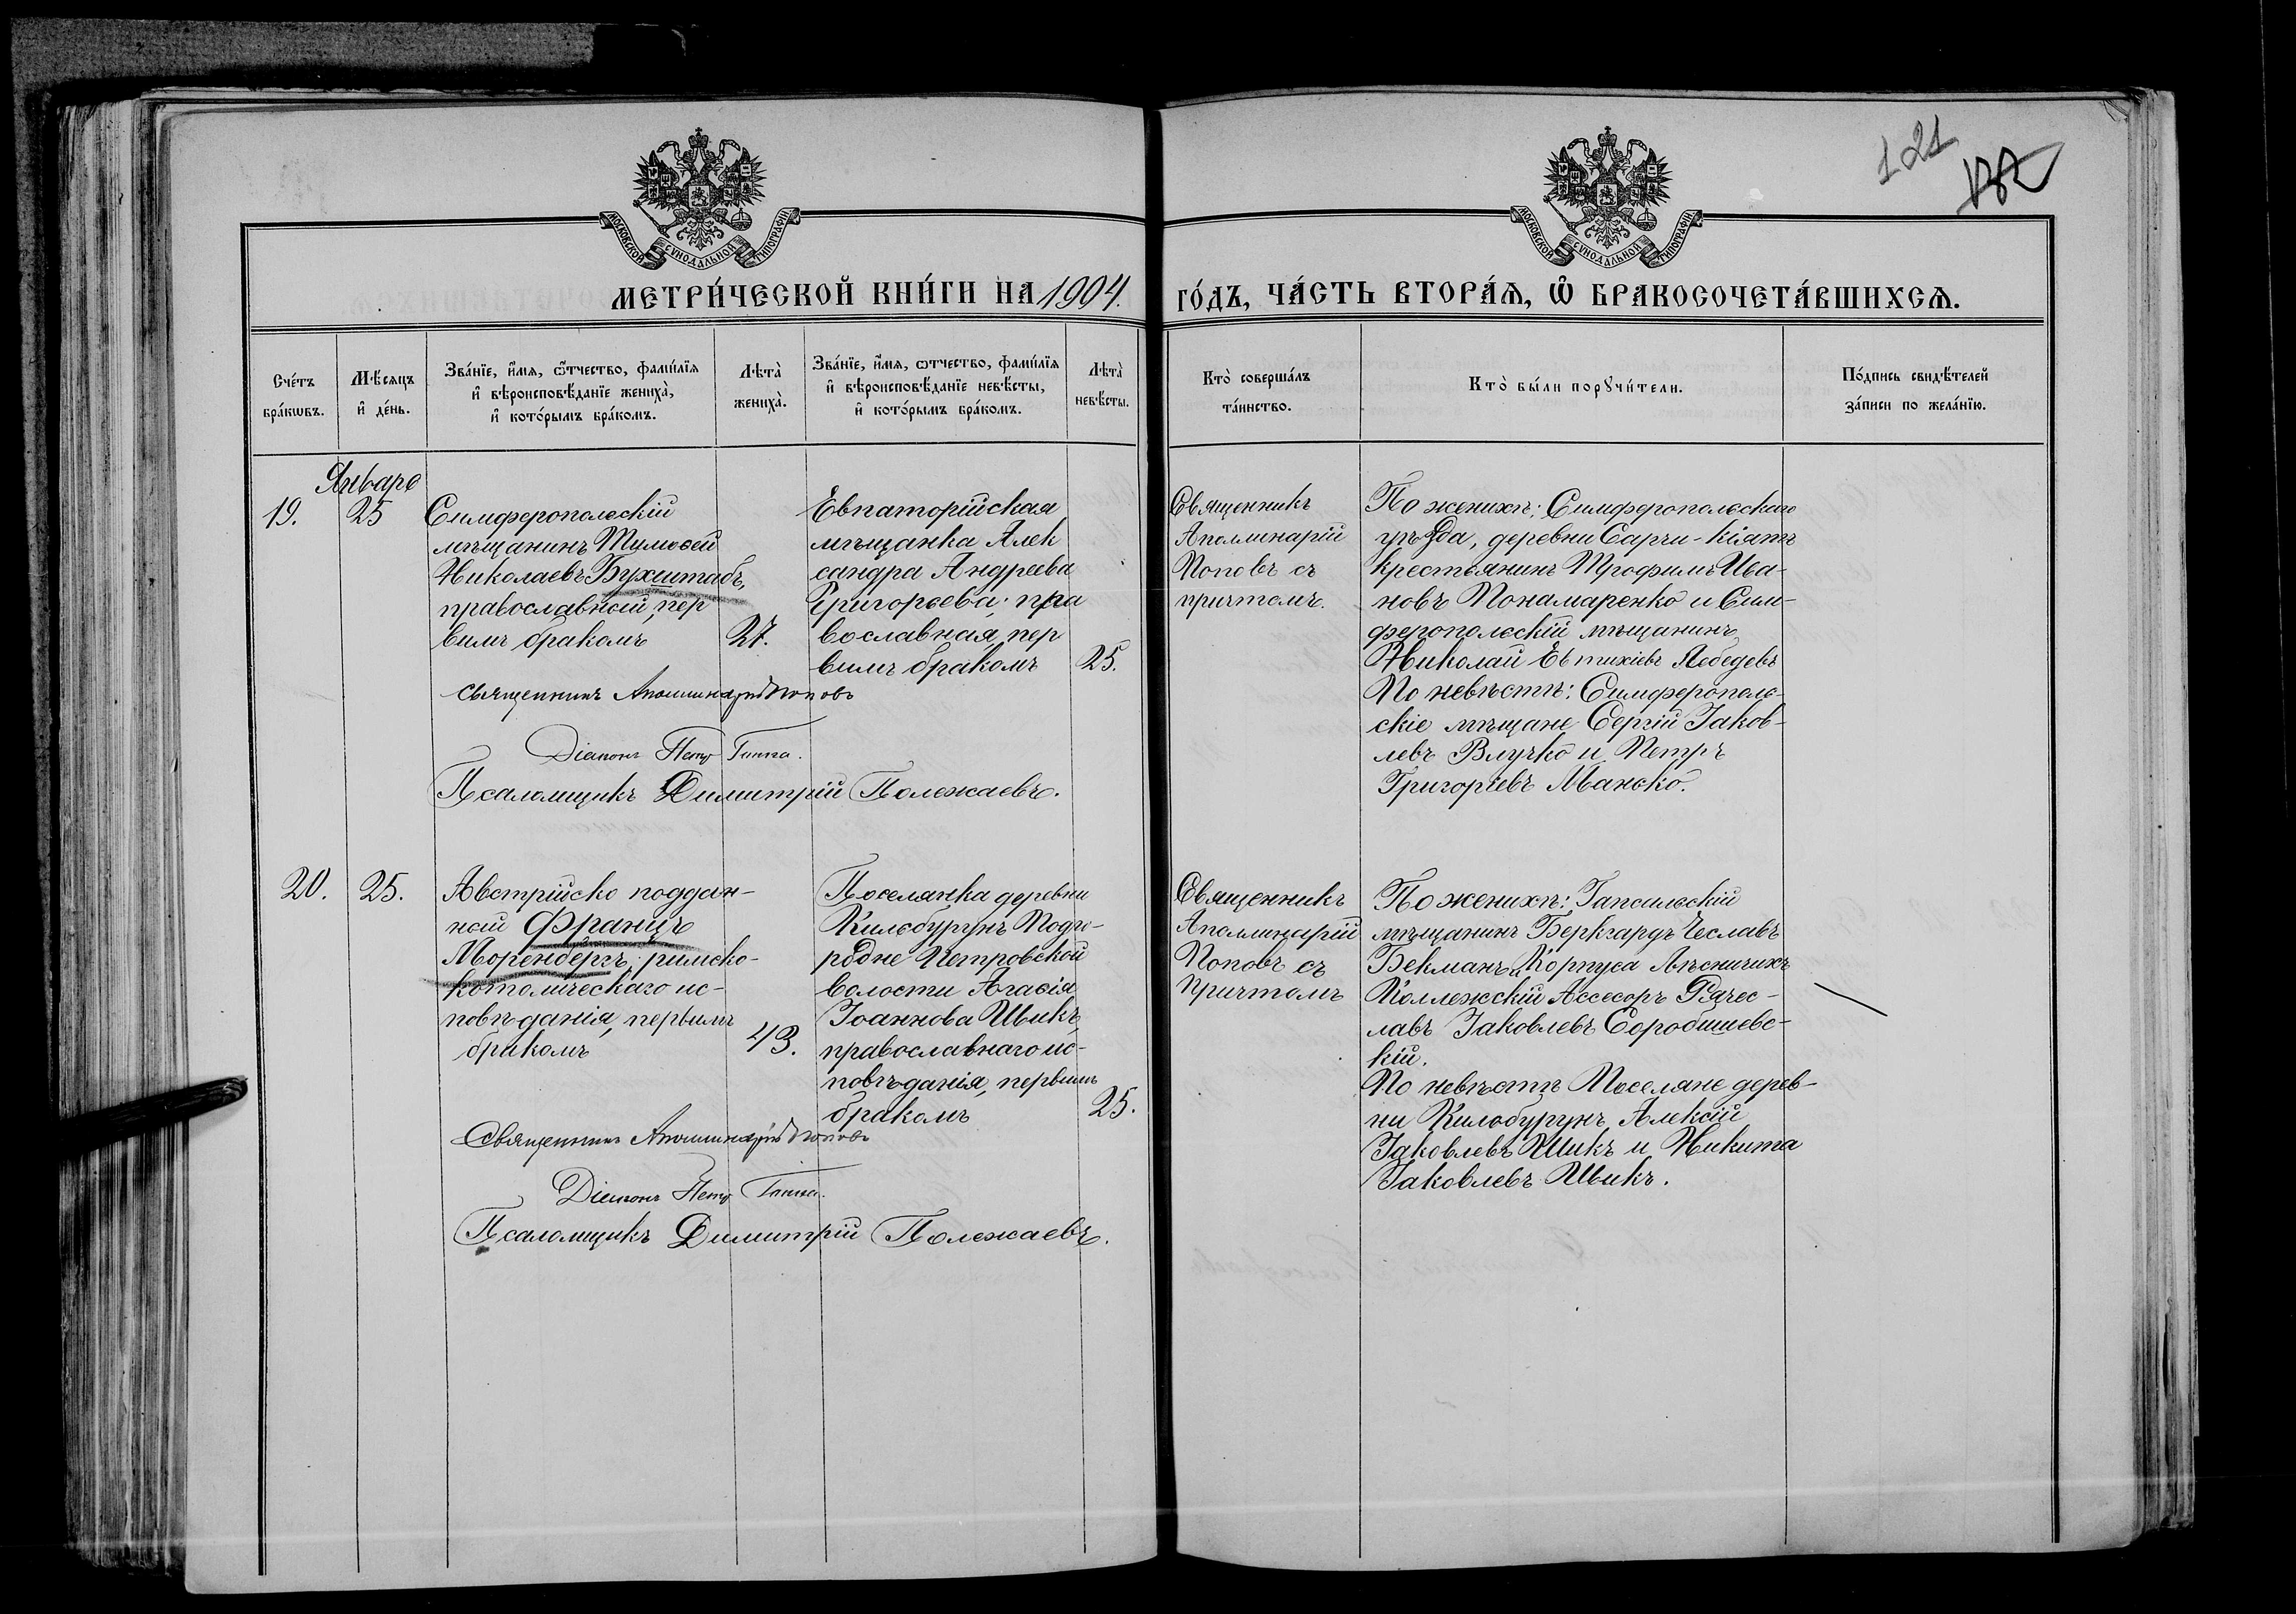 121
МОСКОВСКОЙ СУНОДАЛЬНОЙ ТИПОГРАФІИ
МОСКОВСКОЙ СУНОДАЛЬНОЙ ТИПОГРАФІИ
МЕТРИ́ЧЕСКОЙ КНИ́ГИ НА 1904.
ГО́ДЪ, ЧА́СТЬ ВТОРА́Я, Ѽ БРАКОСОЧЕТА́ВШИХСЯ.
Сче́тъ
бра́кѡвъ.
Мѣ́сяцъ
и҆ де́нь.
Зва́нїе, и҆́мя, ѻ҆́тчество, фамѝлїя
и҆ вѣроисповѣ́данїе жениха̀,
и҆ кото́рымъ бра́комъ.
Лѣта̀
жениха̀.
Зва́нїе, и҆́мя, ѻтчество, фами́лїя
и҆ вѣроисповѣ́данїе невѣ́сты,
и҆ кото́рымъ бра́комъ.
Лѣта̀
невѣ́сты.
Кто̀ соверша́лъ
та́инство.
Кто̀ бы́ли порꙋчи́тели.
По́дпись свидѣ́телей
за́писи по жела́нїю.
Январь
19.
25
Симферопольскій
мѣщанинъ Тимоѳей
Николаевъ Бухштабъ,
православный, пер
вымъ бракомъ
27.
Евпаторійская
мѣщанка Алек
сандра Андреева
Григорьева, пра
вославная, пер
вымъ бракомъ
25.
Священникъ
Аполлинарій
Поповъ съ
причтомъ.
По женихѣ: Симферопольскаго
уѣзда, деревни Сарчи-кіятъ
крестьянинъ Трофимъ Ива-
новъ Понамаренко и Сим-
феропольскій мѣщанинъ
Николай Евтихіевъ Лебедевъ
По невѣстѣ: Симферополь-
скіе мѣщане Сергій Іаков-
левъ Влучко и Петръ
Григоріевъ Манько.
Священникъ Аполлинарій Поповъ
Діаконъ Петр
Псаломщикъ Димитрій Полежаевъ.
20.
25.
Австрійско поддан-
ный Францъ
Моренбергъ, римско-
католическаго ис-
повѣданія, первымъ
бракомъ
43.
Поселянка деревни
Кильбурунъ Подго-
родне Петровской
волости Агаѳія
Іоаннова Шикъ,
православнаго ис-
повѣданія, первымъ
бракомъ
25.
Священникъ
Аполлинарій
Поповъ съ
причтомъ
По женихѣ: Гапсальскій
мѣщанинъ Беркгардъ Чеславъ
Бекманъ и Корпуса Лѣсничихъ
Коллежскій Ассесоръ Вячес-
лавъ Іаковлевъ
кій.
По невѣстѣ Поселяне дерев-
ни Кильбурунъ, Алексій
Іаковлевъ Шикъ и Никита
Іаковлевъ Шикъ.
Священникъ Аполлинарій Поповъ
Діаконъ Петр
Псаломщикъ Димитрій Полежаевъ.